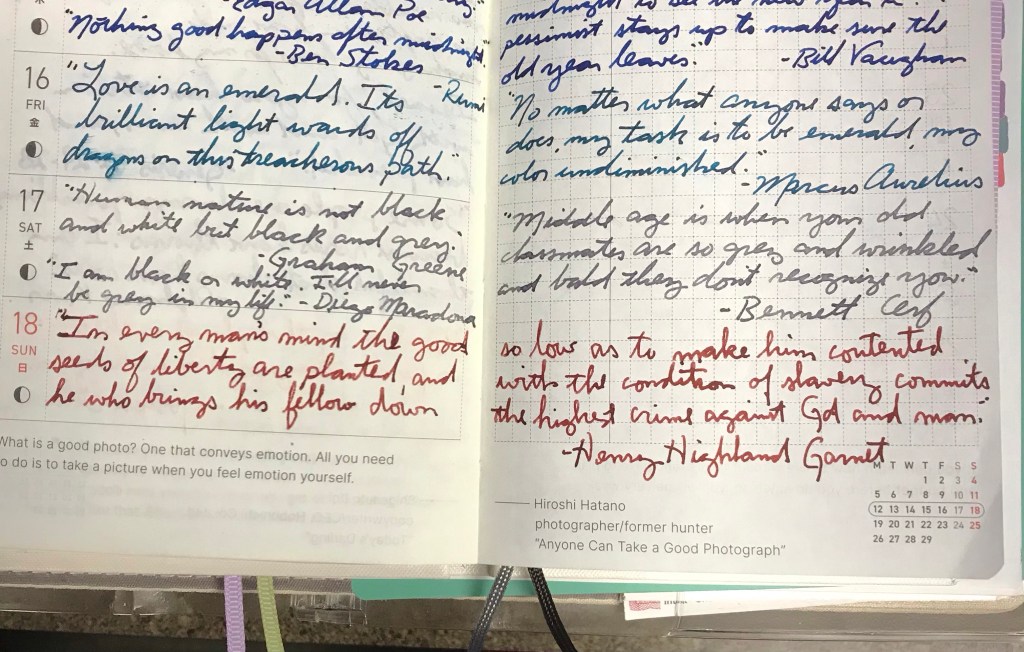 Edgar Allan Poe
"Nothing good happens after midnight"
-Ben Stokes
16
FRI
金
"Love is an emerald. Its
-Rumi
brilliant light wards off
dragons on this treacherous path."
17
SAT
土
"Human nature is not black
and white but black and grey."
-Graham Greene
"I am black or white. I'll never
be grey in my life." - Diego Maradona
18
SUN
日
"In every man's mind the good
seeds of liberty are planted, and
he who brings his fellow down
What is a good photo? One that conveys emotion. All you need
to do is to take a picture when you feel emotion yourself.
midnight to see the new year in.
pessimist stays up to make sure the
old year leaves." -Bill Vaughan
"No matter what anyone says or
does, my task is to be emerald, my
color undiminished."
-Marcus Aurelius
"Middle age is when your old
classmates are so grey and wrinkled
and bald they don't recognize you."
-Bennett Cerf
so low as to make him contented
with the condition of slavery commits
the highest crime against God and man."
-Henry Highland Garnet
Hiroshi Hatano
photographer/former hunter
"Anyone Can Take a Good Photograph"
M T W T F S S
1 2 3 4
5 6 7 8 9 10 11
12 13 14 15 16 17 18
19 20 21 22 23 24 25
26 27 28 29